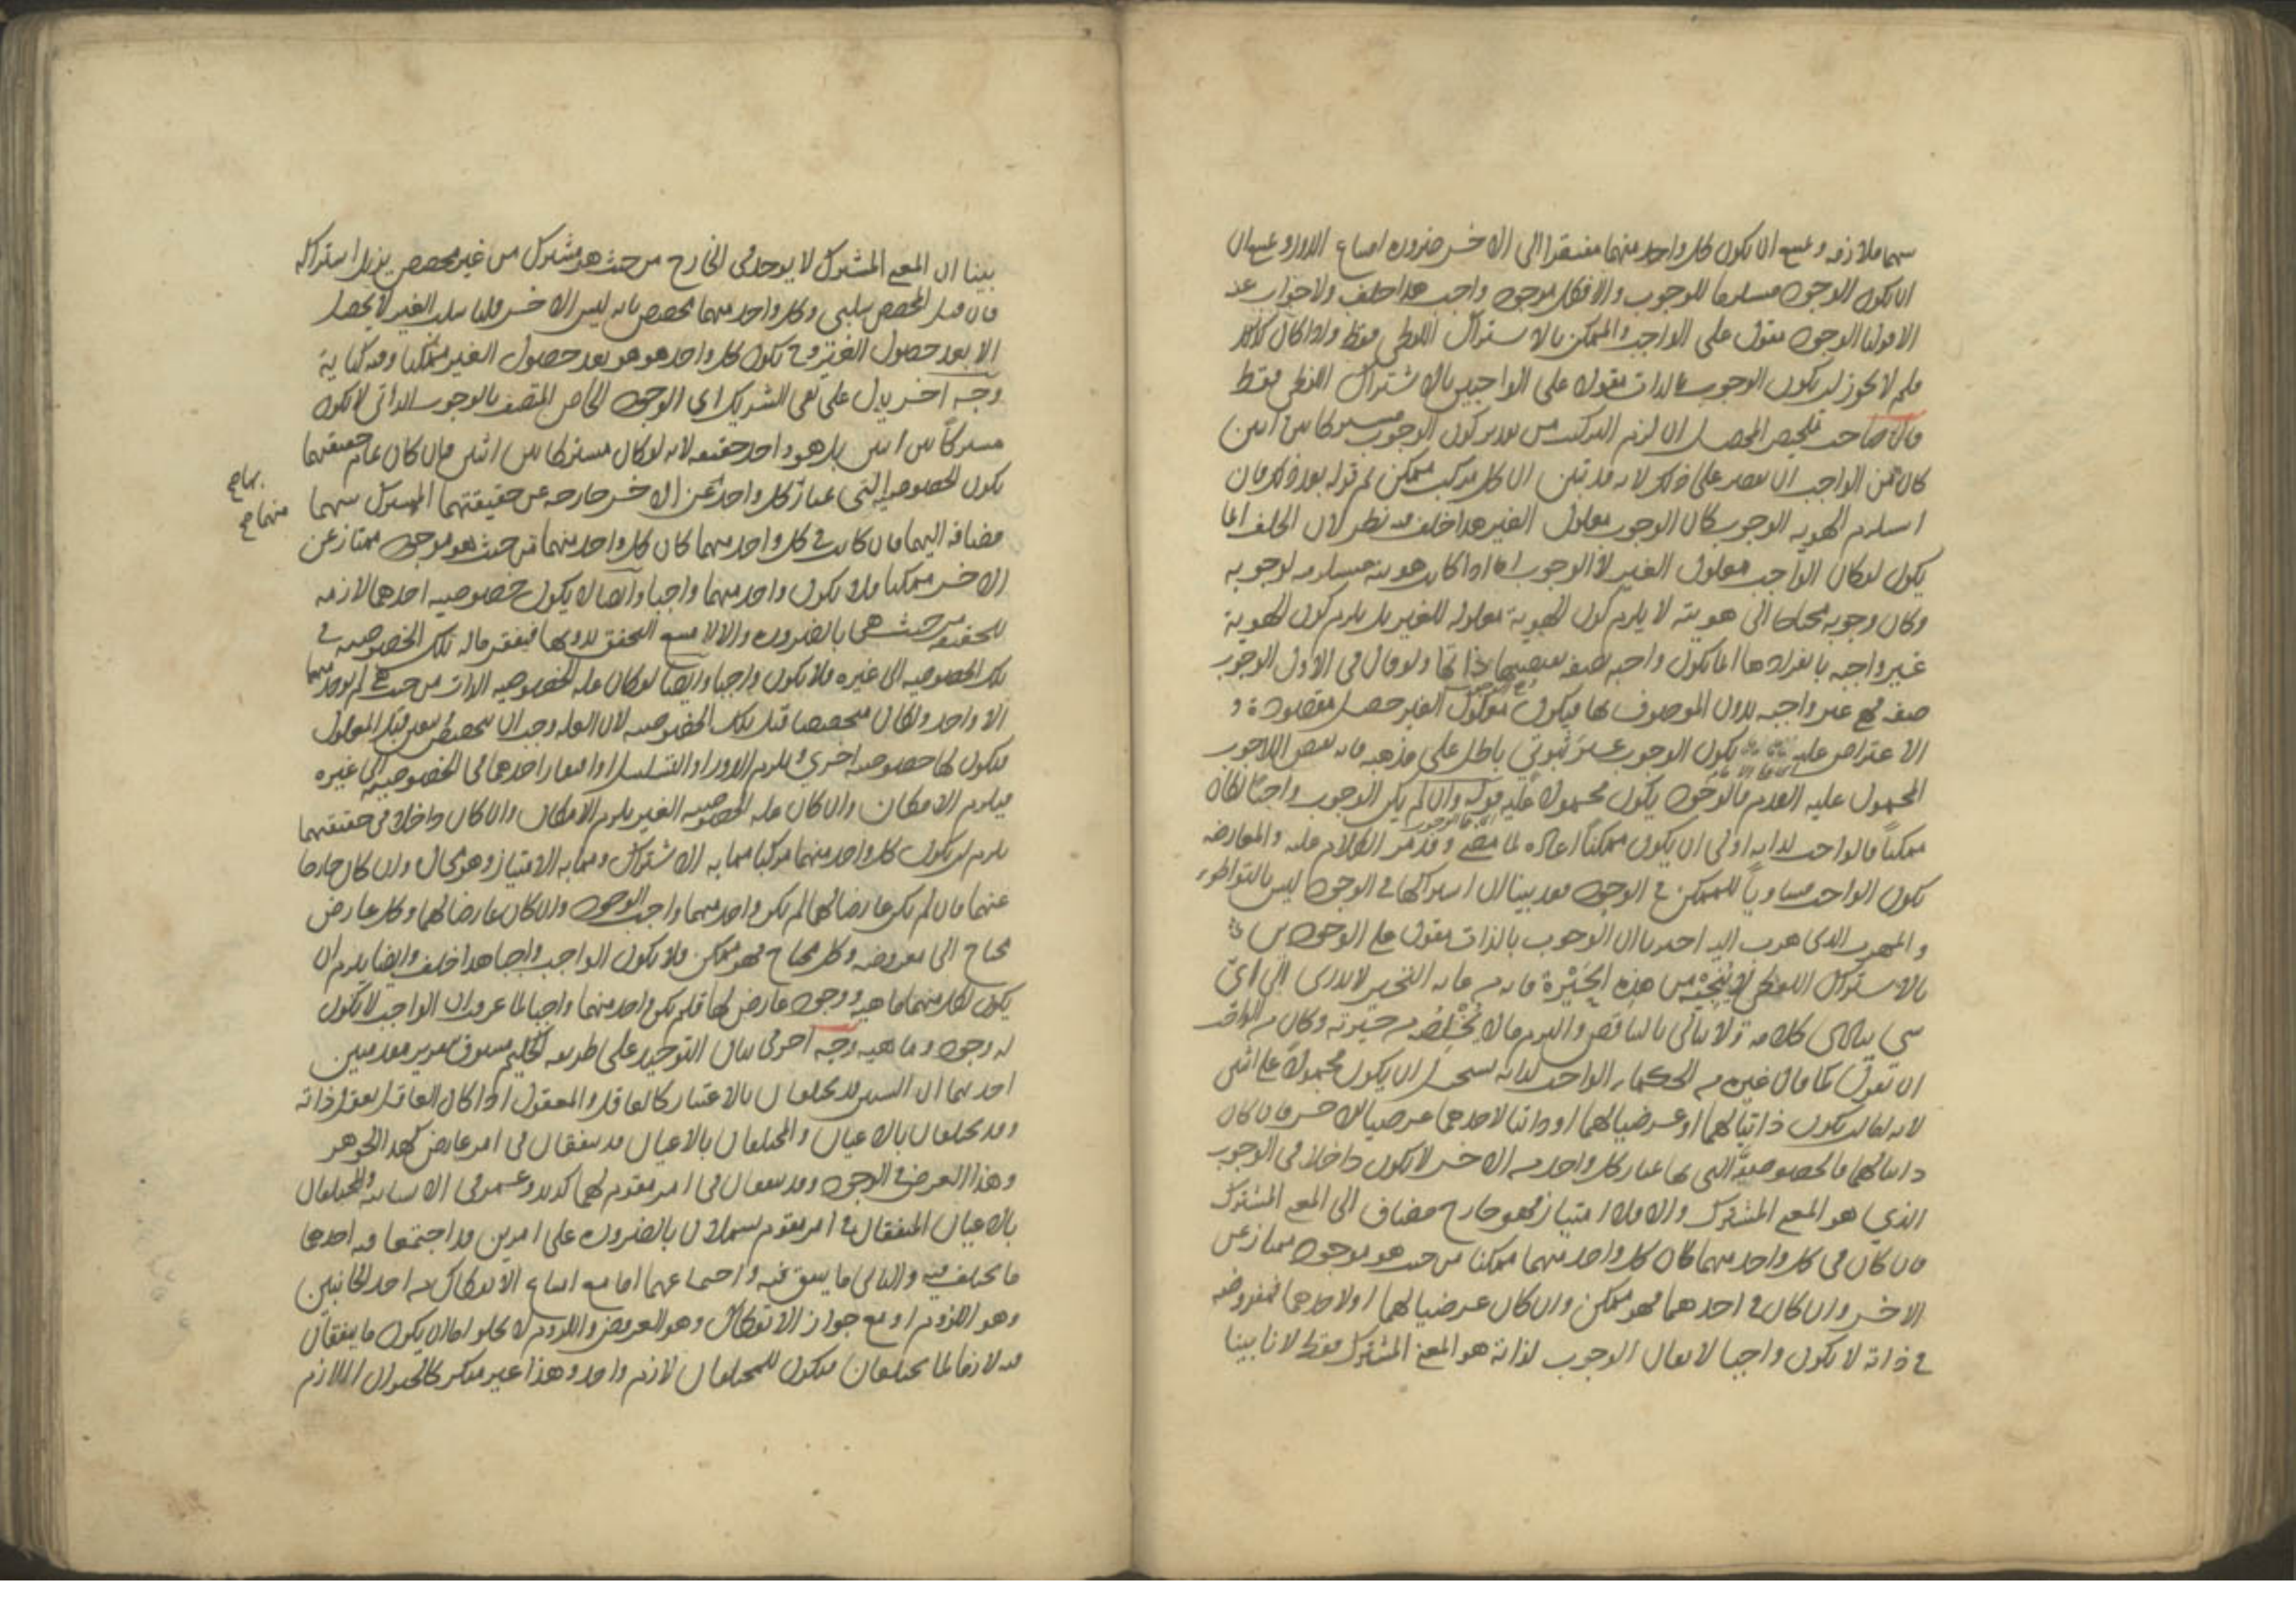 بينهما ملازمة ويمتنع ان يكون كل واحد منهما مفتقرا الى الاخر ضرورة امتناع الدور و
ان يكون الوجود مستلزما للوجوب والا فكل موجود واجب هذا خلف ولا جواب عنه
الا قولنا الوجود مقول على الواجب والممكن بالاشتراك اللفظى فقط واذا كان كذلك
فلم لا يجوز ان يكون الوجوب بالذات مقولا على الواجبين بالاشتراك اللفظى فقط
قال صاحب تلخيص المحصل ان لزم التركيب من تقدير كون الوجوب مشتركا بين اثنين
كان من الواجب ان يقتصر على ذلك لانه قد تبين ان كل مركب ممكن ثم قوله بعد ذلك فان
استلزم الهوية الوجوب كان الوجوب معلول الغير هذا خلف فيه نظر لان الخلف انما
يكون لو كان الواجب معلول الغير لا الوجوب اما اذا كانت هويته مستلزمة لوجوبه
وكان وجوبه محتاجا الى هويته لا يلزم كون الهوية معلولة للغير بل يلزم كون الهوية
غير واجبة بانفرادها انما يكون واجبة بصفة تقتضيها ذاتها ولو قال فى الاول الوجوب
صفة فهى غير واجبة بدون الموصوف بها فيكون معلول الغير حصل مقصوده و
الاعتراض عليه يكون الوجوب غير ثبوتي باطل على مذهبه فانه نقيض اللاوجوب
المحمول عليه العدم فالوجود يكون محمولا عليه قوله وان لم يكن الوجوب واجبا لكان
ممكنا فالواجب لذاته اولى ان يكون ممكنا اعادة لما مضى وقد مر الكلام عليه والمعارضة
بكون الواجب مساويا للممكن فى الوجود فقد بينا ان اشتراكهما فى الوجود ليس بالتواطؤ
والمهرب الذى هرب اليه اخيرا بان الوجوب بالذات مقول على الوجودين
بالاشتراك اللفظى لا ينجيه من هذه الحيرة فانه من التحير لا يدرى الى اى
شى يتأدى كلامه ولا يبالى بالتناقض والتزم مالا يخلصه من حيرته وكان من الواجب
ان تقول كما قال غيره من الحكماء الواجب لذاته يستحيل ان يكون محمولا على اثنين
لانه اما ان يكون ذاتيا لهما او عرضيا لهما او ذاتيا لاحدهما عرضيا للاخر فان كان
ذاتيا لهما فالخصوصية التى بها يمتاز كل واحد من الاخر لا يكون داخلا فى الوجوب
الذي هو المعنى المشترك والا فلا امتياز فهو خارج مضاف الى المعنى المشترك
فان كان فى كل واحد منهما كان كل واحد منهما ممكنا من حيث هو موجود ممتاز عن
الاخر وان كان فى احدهما فهو ممكن وان كان عرضيا لهما او لاحدهما فمعروضه
فى ذاته لا يكون واجبا لا يقال الوجوب لذاته هو المعنى المشترك فقط لانا بينا
بينا ان المعنى المشترك لا يوجد فى الخارج من حيث هو مشترك من غير مخصص يزيل اشتراكه
فان قيل المخصص سلبى وكل واحد منهما مختص بانه ليس الاخر قلنا سلب الغير لا يحصل
الا بعد حصول الغير وح يكون كل واحد هو هو بعد حصول الغير ممكنا وفيه كفاية
وجه اخر يدل على نفى الشريك اى الوجود الخاص المتصف بالوجوب الذاتى لا يكون
مشتركا بين اثنين بل هو واحد حقيقة لانه لو كان مشتركا بين اثنين فان كان تمام حقيقتهما
يكون الخصوصية التى يمتاز كل واحد عن الاخر خارجة عن حقيقتهما المشترك بينهما
مضافة اليهما فان كانت فى كل واحد منهما كان كل واحد منهما من حيث هو موجود ممتاز عن
الاخر ممكنا فلا يكون واحد منهما واجبا وايضا لا يكون خصوصية احدهما لازمة
للحقيقة من حيث هى بالضرورة والا لامتنع التحقق بدونها فيفتقر ماله تلك الخصوصية فى
تلك الخصوصية الى غيره فلا يكون واجبا وايضا لو كان علة الخصوصية الذات من حيث هى لم يوجد منهما
الا واحد ولكان متخصصا قبل تلك الخصوصية لان العلة وجب ان قبل المعلول
فيكون لها خصوصية اخرى ويلزم الدور او التسلسل او افتقار احدهما فى الخصوصية الى غيره
فيلزم الامكان وان كان علة الخصوصية الغير يلزم الامكان وان كان داخلا فى حقيقتهما
يلزم ان يكون كل واحد منهما مركبا مما به الاشتراك ومما به الامتياز وهو محال وان كان خارجا
عنهما فان لم يكن عارضا لهما لم يكن واحد منهما واجب الوجود وان كان عارضا لهما وكل عارض
محتاج الى معروضه وكل محتاج فهو ممكن فلا يكون الواجب واجبا هذا خلف وايضا يلزم ان
يكون لكل منهما ماهية ووجود عارض لها فلم يكن واحد منهما واجبا لما عرفت ان الواجب لا يكون
له وجود وماهية وجه آخر فى بيان التوحيد على طريقة الحكيم مسبوق بتقرير مقدمتين
احديهما ان الشيئين قد يختلفان بالاعتبار كالعاقل والمعقول اذا كان العاقل يعقل ذاته
وقد يختلفان بالاعيان والمختلفان بالاعيان قد يتفقان فى امر عارض كهذا الجوهر
وهذا العرض فى الوجود وقد يتفقان فى امر مقوم لهما كزيد وعمرو فى الانسانية والمختلفان
بالاعيان المتفقان فى امر مقوم يشتملان بالضرورة على امرين قد اجتمعا فيه احدهما
ما يختلف فيه والثانى ما يتفق فيه واجتماعهما اما مع امتناع الانفكاك من احد الجانبين
وهو اللزوم او مع جواز الانفكاك وهو العروض واللزوم لا يخلو اما ان يكون ما يتفقان
فيه لازما لما يختلفان فيكون للمختلفان لازم واحد وهذا غير منكر كالحيوان اللازم
منهما صح